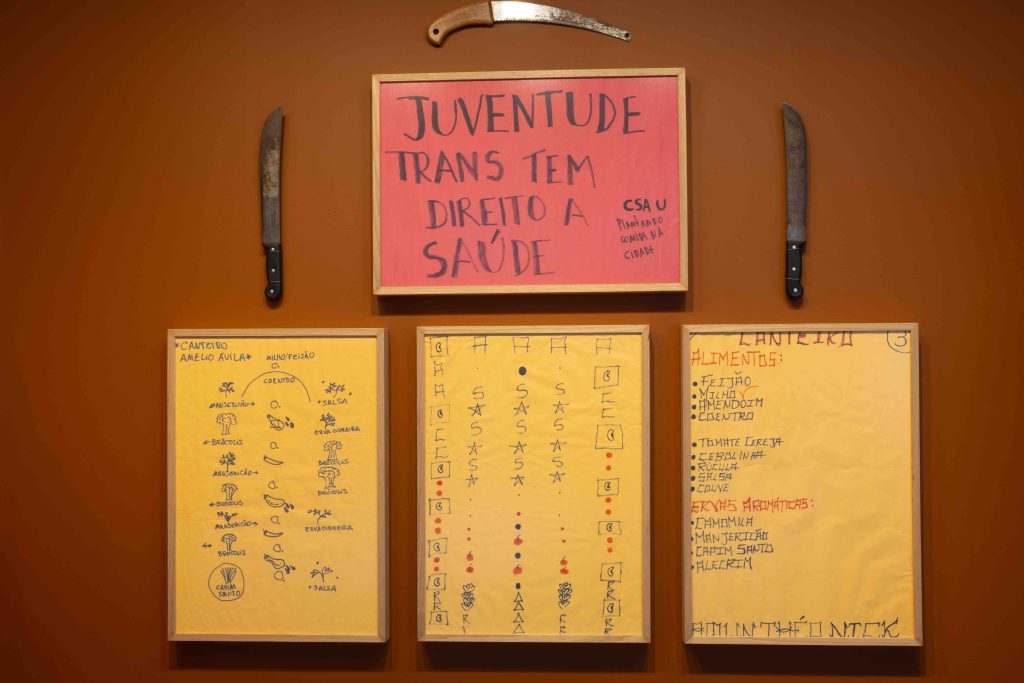 JUVENTUDE
TRANS TEM
DIREITO A
SAÚDE
CSA U
PLANTANDO
COMIDA NA
CIDADE
*CANTEIRO
AMÉLIO ÁVILA*
MILHO/FEIJÃO
COENTRO
MANJERICÃO→
• SALSA
←BRÓCOLIS
ERVA CIDREIRA
MANJERICÃO→
BRÓCOLIS
←BRÓCOLIS
BRÓCOLIS
MANJERICÃO→
ERVA CIDREIRA
←BRÓCOLIS
CAPIM
SANTO
• SALSA
CANTEIRO
3
ALIMENTOS:
• FEIJÃO
• MILHO
• AMENDOIM
• COENTRO
• TOMATE CEREJA
• CEBOLINHA
• RÚCULA
• SALSA
• COUVE
ERVAS AROMÁTICAS:
• CAMOMILA
• MANJERICÃO
• CAPIM SANTO
• ALECRIM